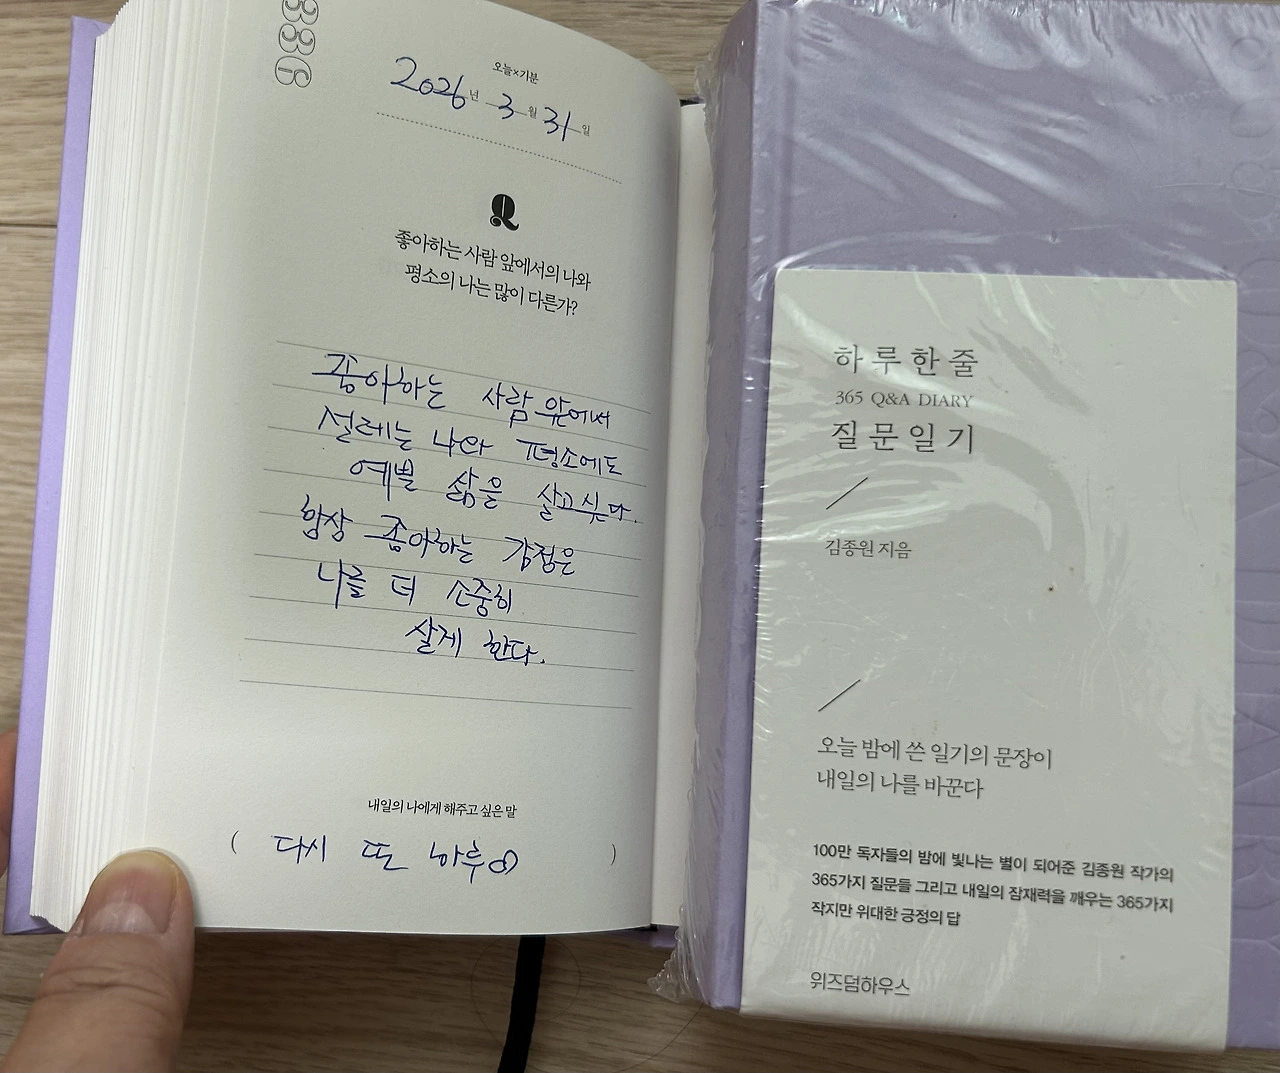 336
오늘×기분
2026년 3월 31일
Q
좋아하는 사람 앞에서의 나와
평소의 나는 많이 다른가?
좋아하는 사람 앞에서
설레는 나와 평소에도
예쁠 삶을 살고싶다.
항상 좋아하는 감정은
나를 더 소중히
살게 한다.
내일의 나에게 해주고 싶은 말
( 다시 또 하루 )
하루 한 줄
365 Q&A DIARY
질문일기
김종원 지음
오늘 밤에 쓴 일기의 문장이
내일의 나를 바꾼다
100만 독자들의 밤에 빛나는 별이 되어준 김종원 작가의
365가지 질문들 그리고 내일의 잠재력을 깨우는 365가지
작지만 위대한 긍정의 답
위즈덤하우스